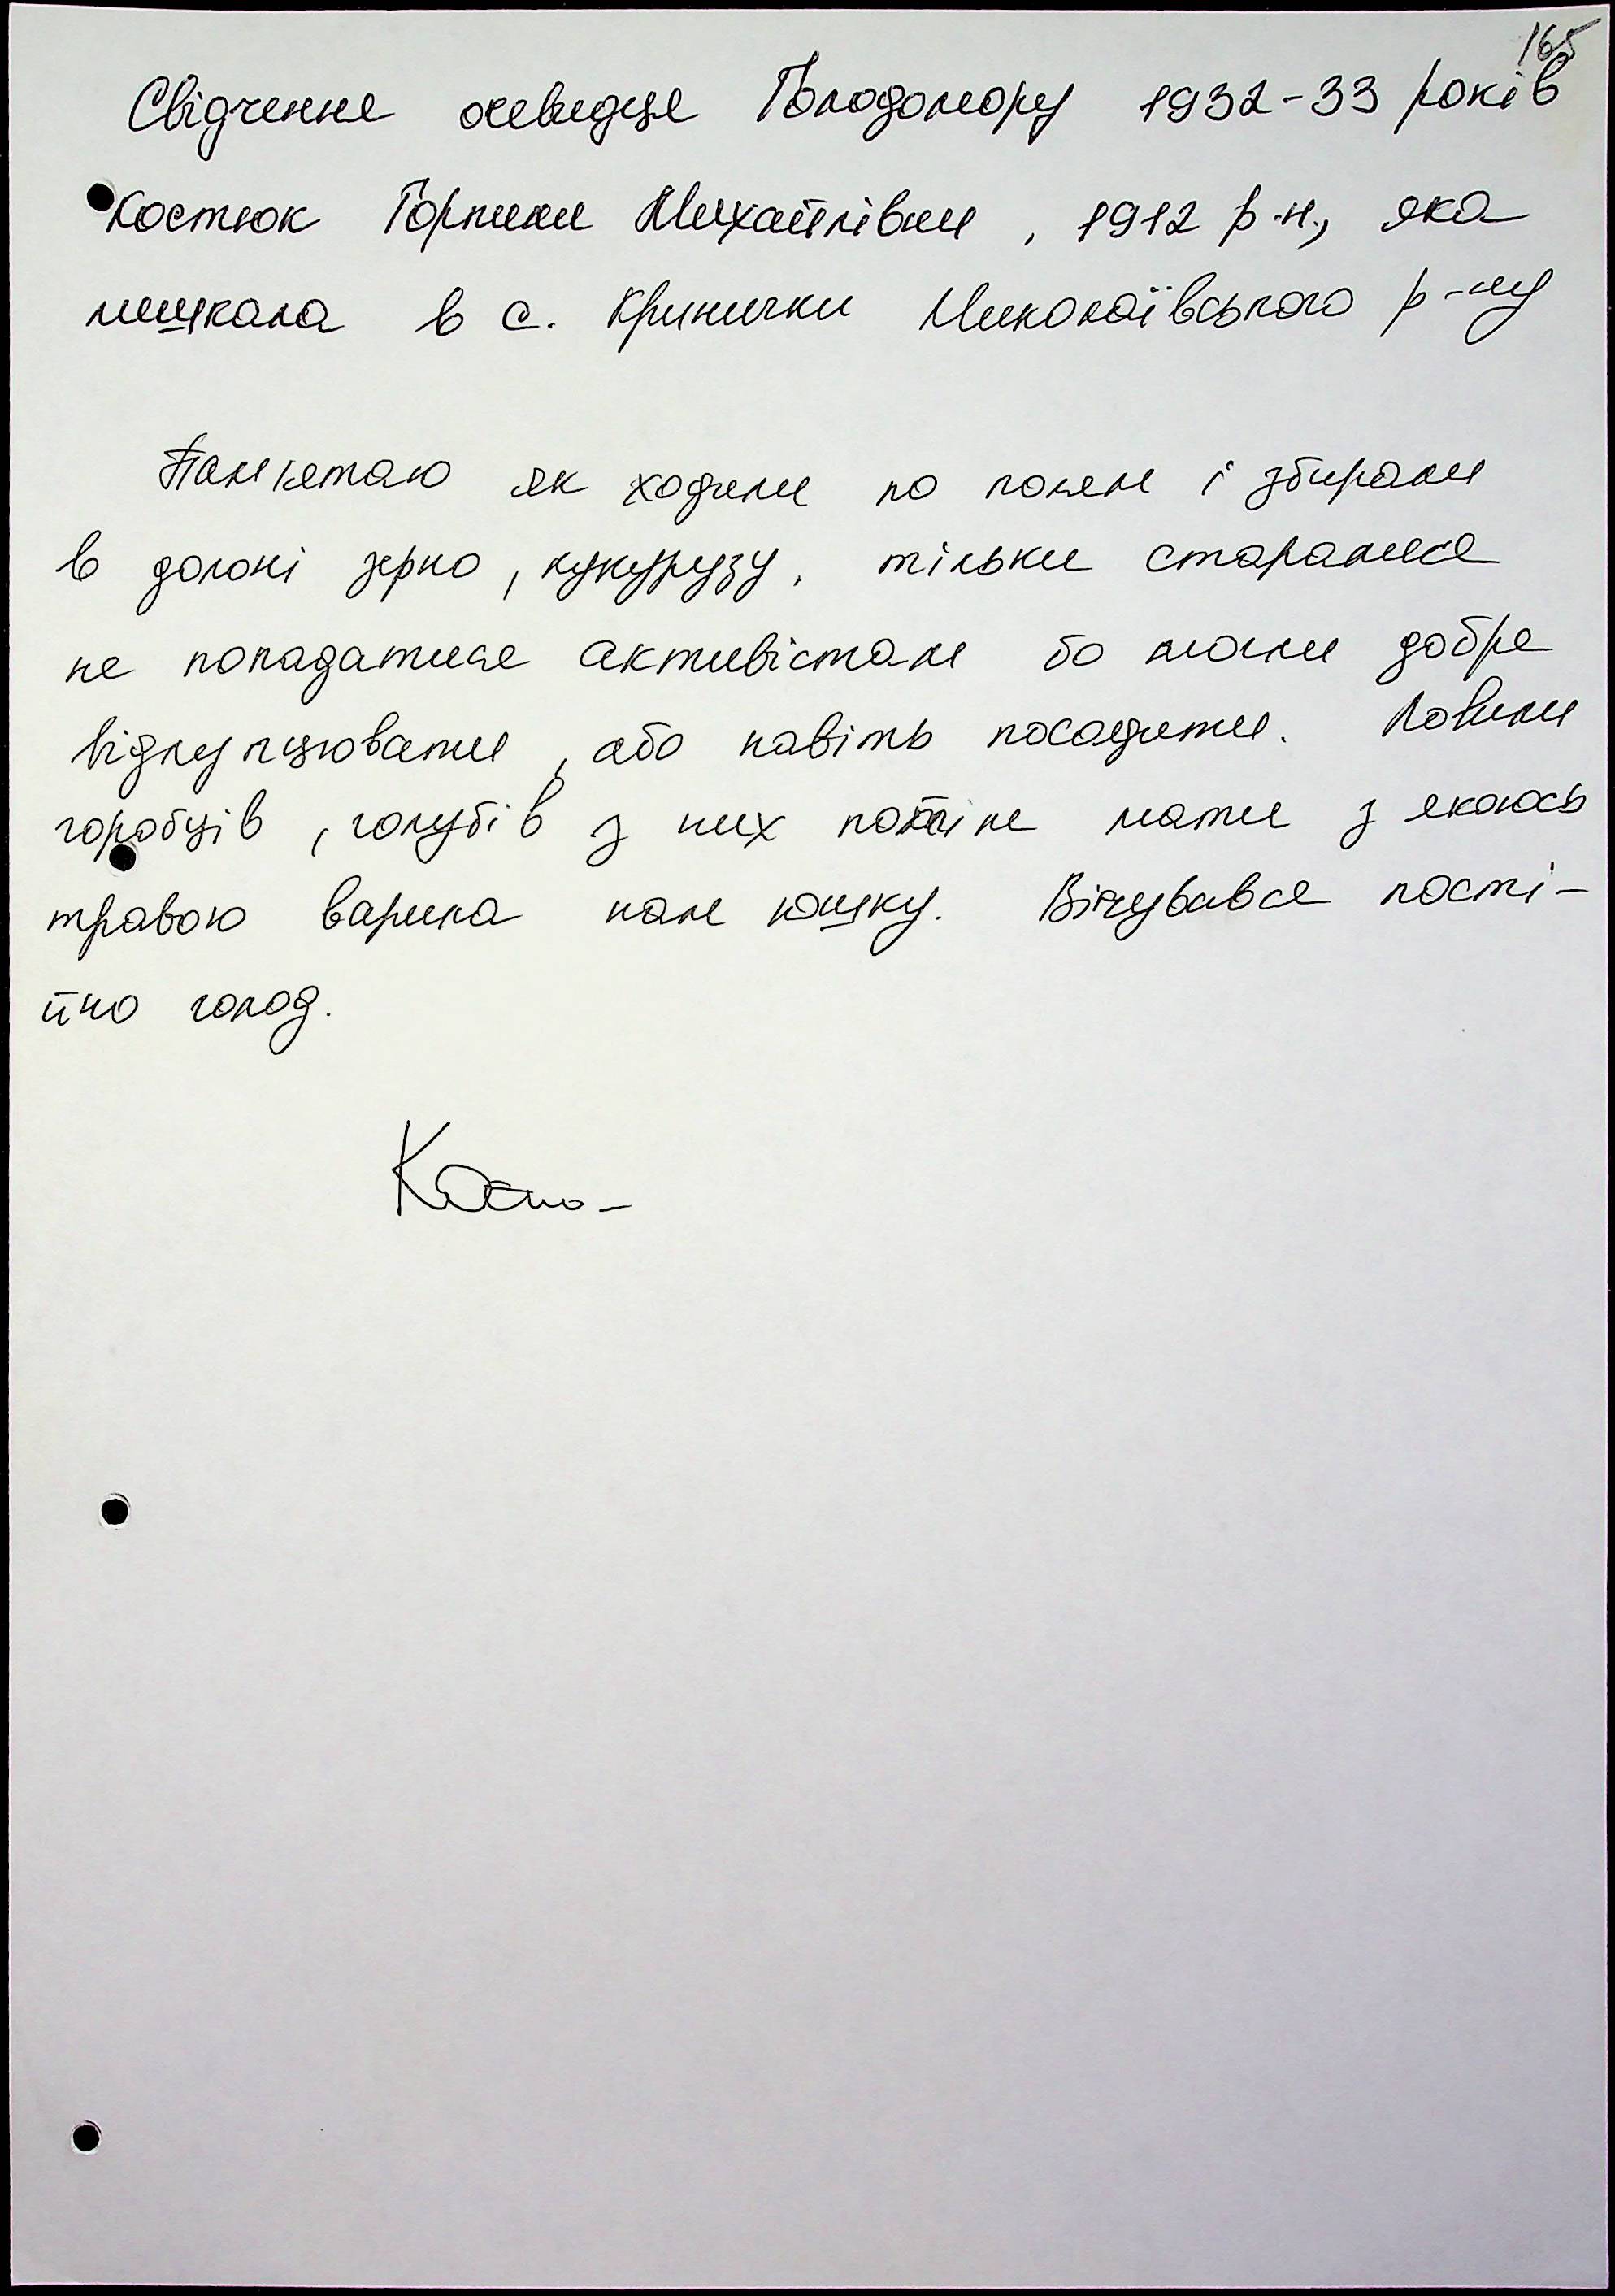 165
Свідчення очевидця Голодомору 1932-33 років
Костюк Горпини Михайлівни, 1912 р.н., яка
мешкала в с. Кринички Миколаївського р-ну
Пам'ятаю як ходили по полям і збирали
в долоні зерно, кукурузу, тільки старалися
не попадатися активістам бо могли добре
відлупцювати, або навіть посадити. Ловили
горобців, голубів з них потім мати з якоюсь
травою варила нам юшку. Вічувався пості-
йно голод.